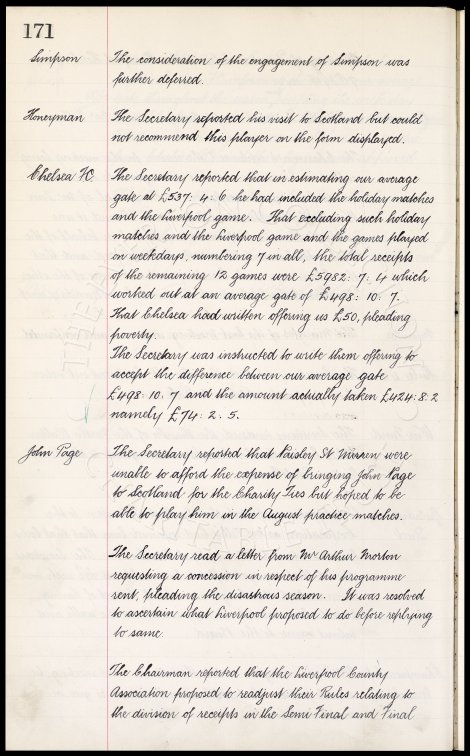 171
Simpson The consideration of the engagement of Simpson was
further deferred.
Honeyman The Secretary reported his visit to Scotland but could
not recommend this player on the form displayed.
Chelsea FC. The Secretary reported that in estimating our average
gate at £537: 4: 6 he had included the holiday matches
and the Liverpool game. That excluding such holiday
matches and the Liverpool game and the games played
on weekdays, numbering 7 in all, the total receipts
of the remaining 12 games were £5982: 7: 4 which
worked out at an average gate of £498: 10: 7.
That Chelsea had written offering us £50, pleading
poverty.
The Secretary was instructed to write them offering to
accept the difference between our average gate
£498: 10. 7 and the amount actually taken £424: 8: 2
namely £74: 2. 5.
John Page The Secretary reported that Paisley St Mirren were
unable to afford the expense of bringing John Page
to Scotland for the Charity Ties but hoped to be
able to play him in the August practice matches.
The Secretary read a letter from Mr Arthur Morton
requesting a concession in respect of his programme
rent, pleading the disastrous season. It was resolved
to ascertain what Liverpool proposed to do before replying
to same.
The Chairman reported that the Liverpool County
Association proposed to readjust their Rules relating to
the division of receipts in the Semi Final and Final